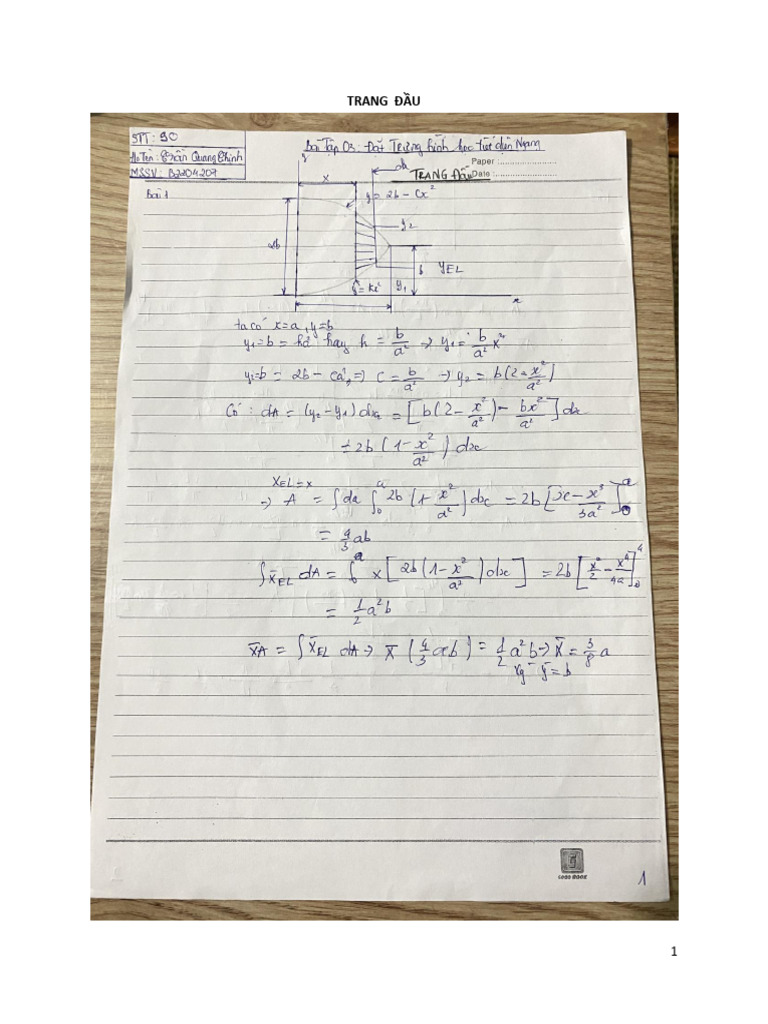 TRANG ĐẦU
STT: 90
Họ Tên: Trần Quang Chinh
MSSV: B2204207
Bài Tập 03: Đặt Trưng hình học Tiết diện Ngang
Paper :
TRANG ĐẦU Date :
Bài 1
y
x
dx
y = 2b - Cx²
y₂
2b
b
y_EL
y = kx²
y₁
x
ta có x=a, y=b
y₁=b = ka² hay k = b/a² → y₁ = b/a² x²
y₂=b = 2b - ca² => c = b/a² → y₂ = b(2 - x²/a²)
Có: dA = (y₂-y₁)dx = [b(2 - x²/a²) - bx²/a²]dx
= 2b(1 - x²/a²)dx
x̄_EL = x
→ A = ∫da ∫₀ᵃ 2b(1 - x²/a²)dx = 2b[x - x³/3a²]₀ᵃ
= 4/3 ab
∫x̄_EL dA = ∫₀ᵃ x[2b(1 - x²/a²)dx] = 2b[x²/2 - x⁴/4a]₀ᵃ
= 1/2 a²b
x̄A = ∫x̄_EL dA → x̄(4/3 ab) = 1/2 a²b → x̄ = 3/8 a
ȳ = b
1
1